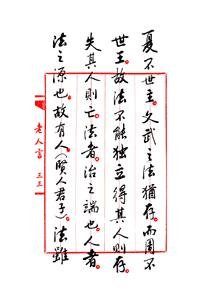 夏不世王。文武之法猶存。而周不
世王。故法不能独立得其人則存。
失其人則亡。法者。治之端也。人者。
法之源也。故有人(賢人君子)。法雖
老人言 三三